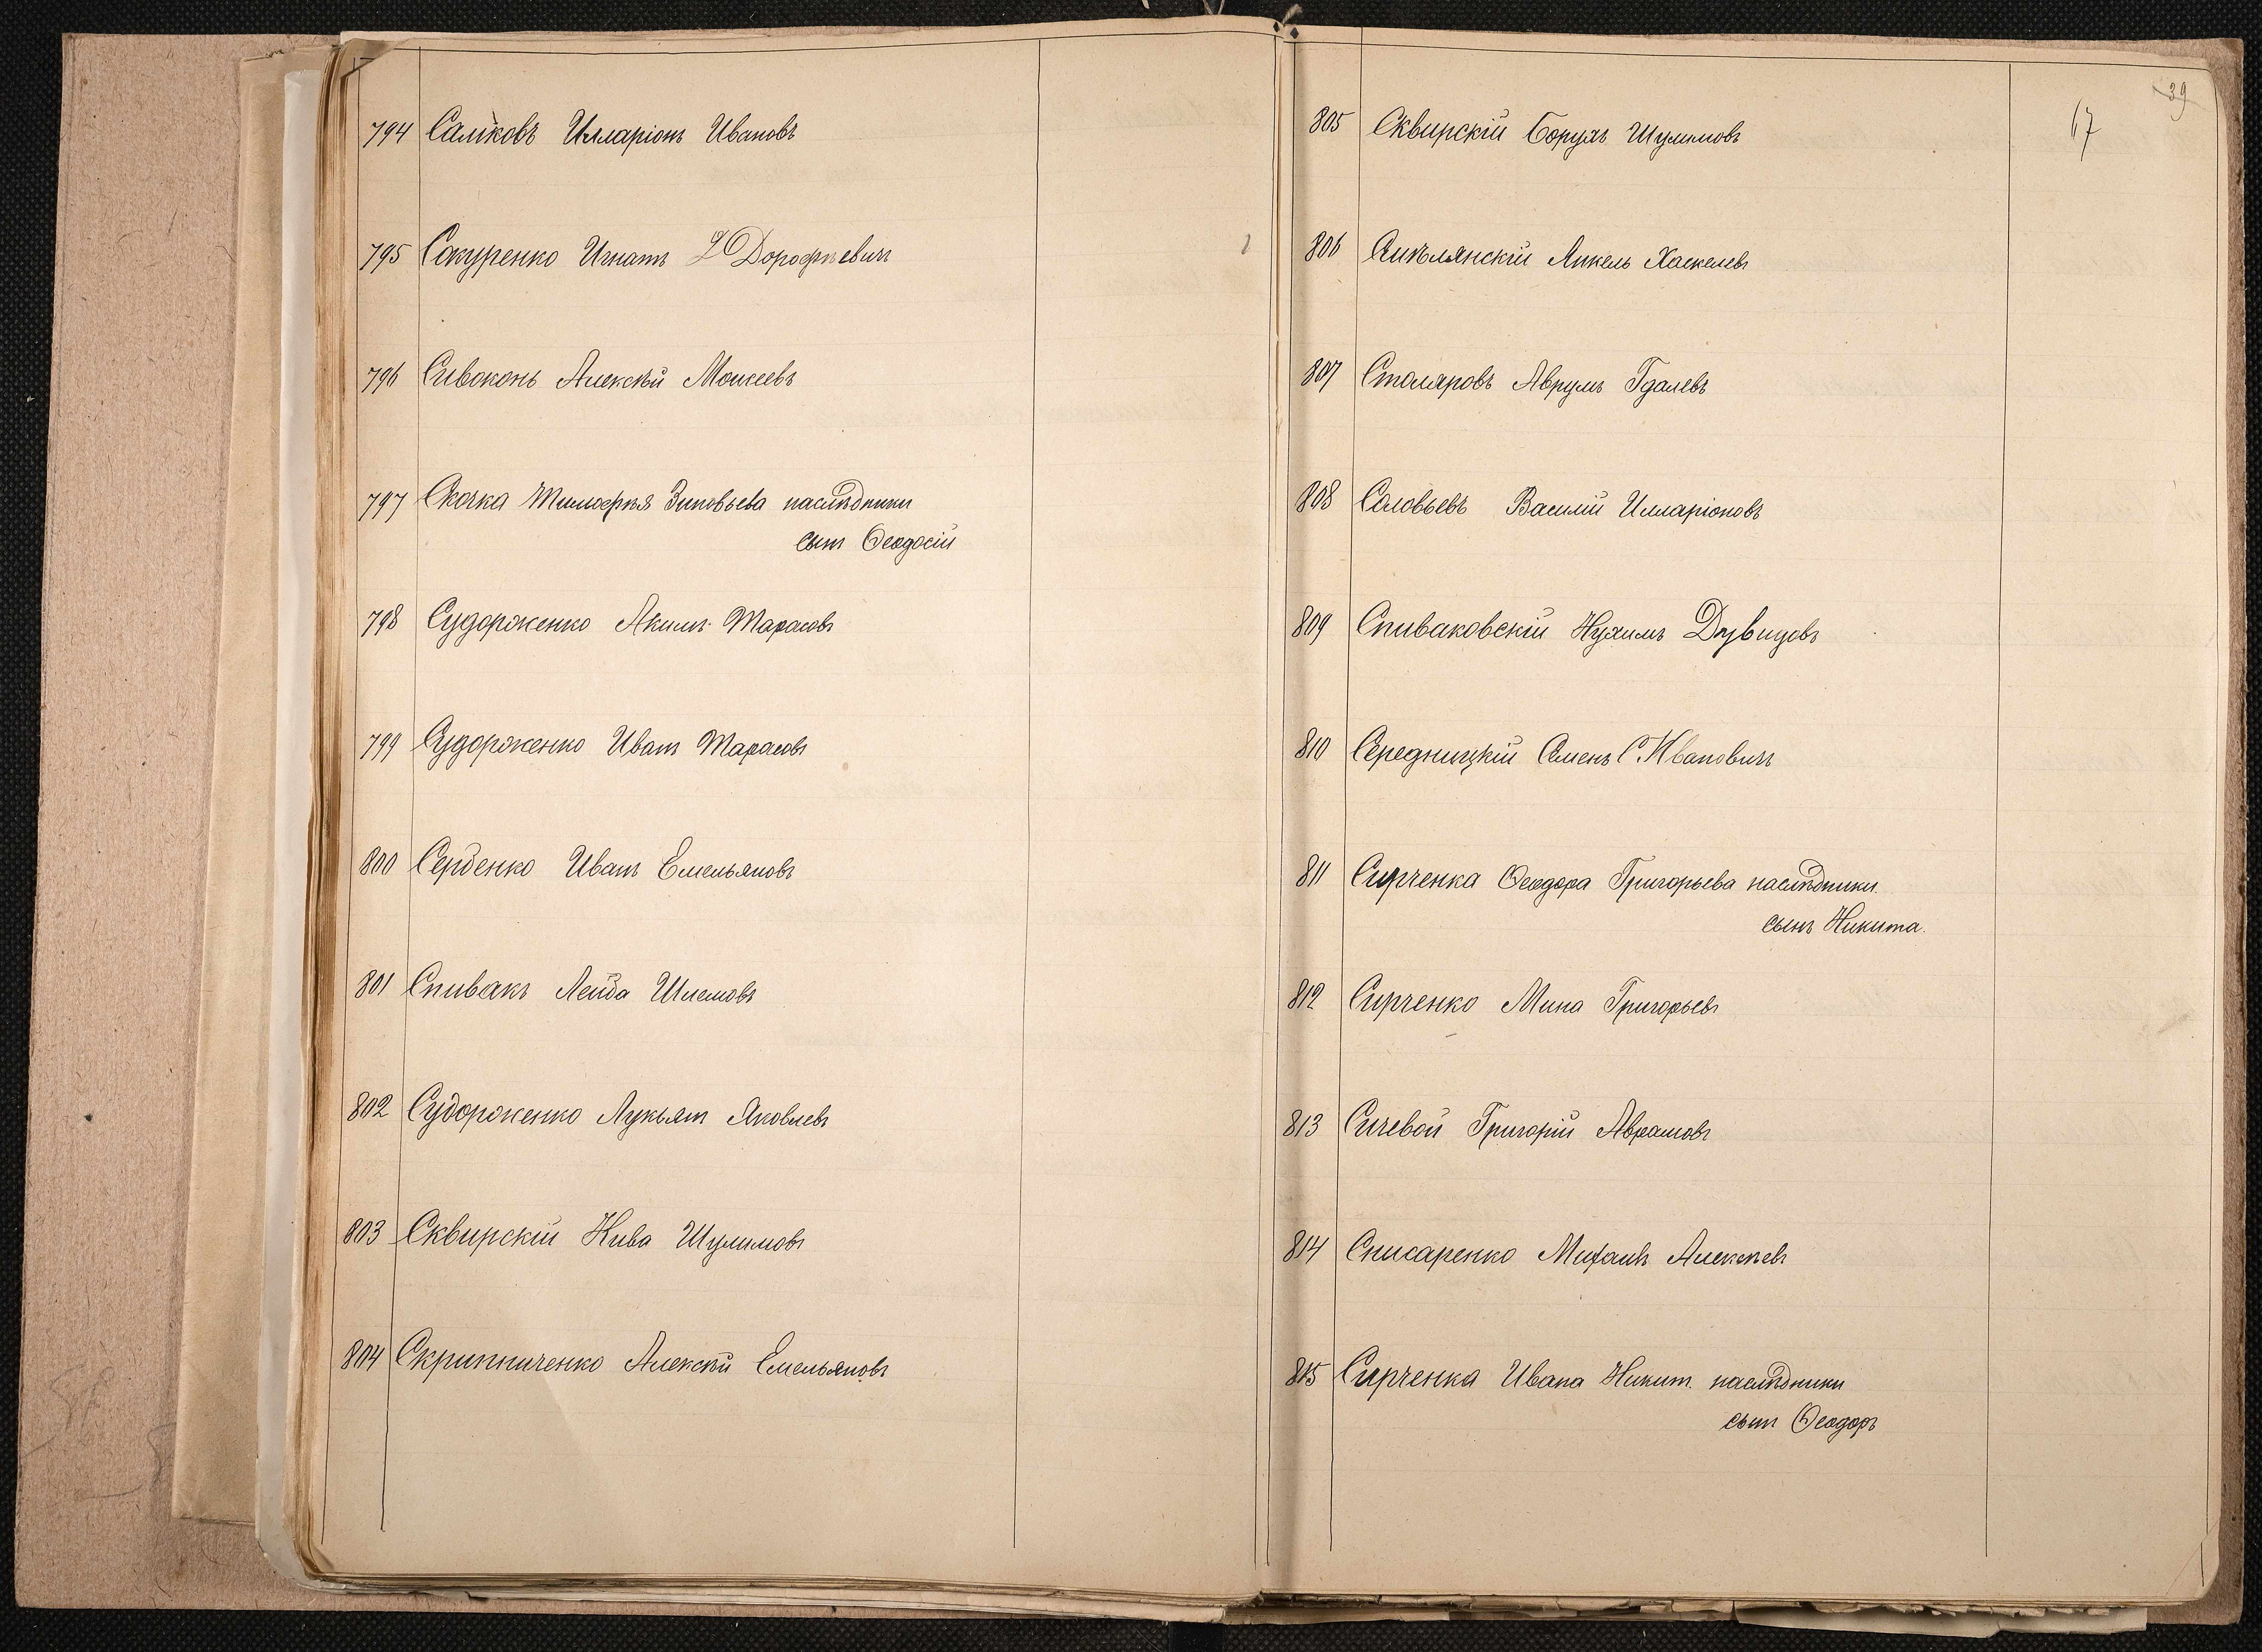 794 Саликовъ Илларіонъ Ивановъ
795 Сокуренко Игнатъ Дорофѣевичъ
796 Сивоконь Алексѣй Моисеевъ
797 Скочка Тимофѣя Зиновьева наслѣдники
сынъ Ѳеодосій
798 Судорженко Акимъ Тарасовъ
799 Судорженко Иванъ Тарасовъ
800 Сербенко Иванъ Емельяновъ
801 Спивакъ Лейба Шлемовъ
802 Судорженко Лукьянъ Яковлевъ
803 Сквирскій Хива Шулимовъ
804 Скрипниченко Алексѣй Емельяновъ
39
67
805 Сквирскій Борухъ Шулимовъ
806 Янкель Хаскелевъ
807 Столяровъ Аврумъ Гдалевъ
808 Соловьевъ Василій Илларіоновъ
809 Спиваковскій Нухимъ Дувидовъ
810 Середницкій Семенъ Ивановичъ
811 Сирченка Ѳеодора Григорьева наслѣдники.
сынъ Никита.
812 Сирченко Мина Григорьевъ
813 Сичевой Григорій Аврамовъ
814 Снисаренко Михаилъ Алексѣевъ
815 Сирченка Ивана Никит. наслѣдники
сынъ Ѳеодоръ